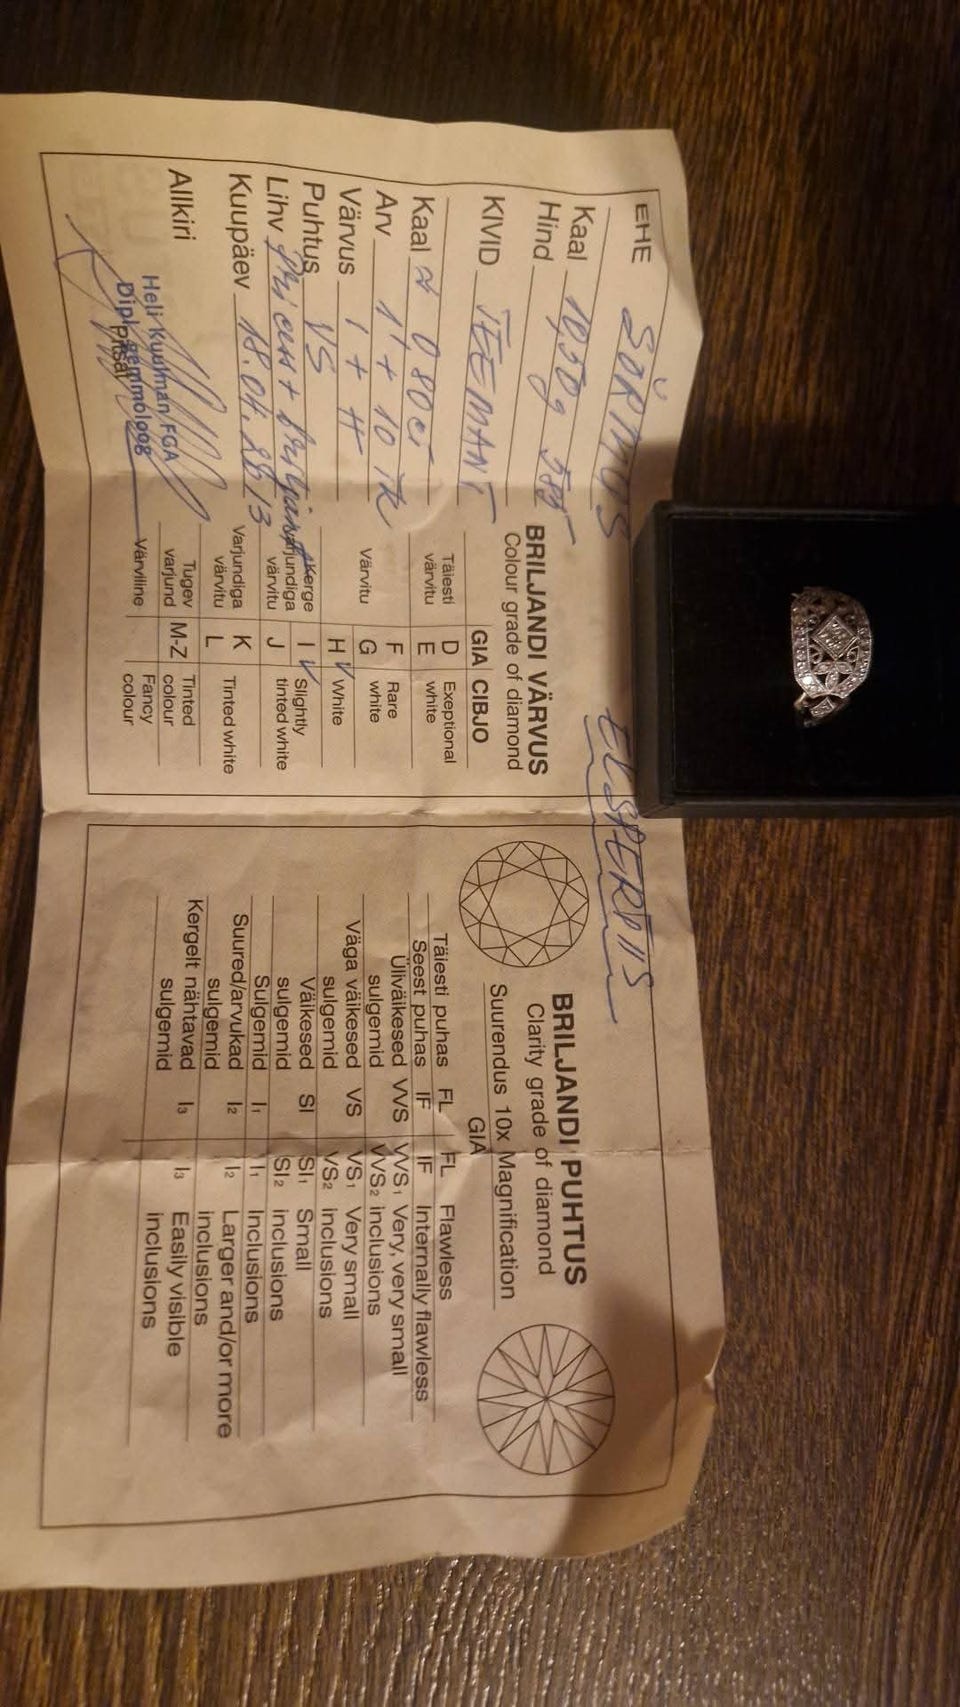 EHE SÕRMUS
Kaal 10,50g 585
Hind
KIVID TEEMANT
Kaal ≈ 0.80ct
Arv 11 + 10 TK
Värvus I + H
Puhtus VS
Lihv Princess + briljant
Kuupäev
Allkiri
Heli Kuulman FGA
Dipl. gemmoloog
Pitsat
EKSPERTIIS
BRILJANDI VÄRVUS
Colour grade of diamond
GIA CIBJO
Täiesti D Exeptional
värvitu E white
F Rare
Värvitu G white
H √ White
Kerge I √ Slightly
varjundiga J tinted white
värvitu
Varjundiga K Tinted white
värvitu L
Tugev M-Z Tinted
varjund colour
Värviline Fancy
colour
BRILJANDI PUHTUS
Clarity grade of diamond
Suurendus 10x Magnification
GIA
Täiesti puhas FL FL Flawless
Seest puhas IF IF Internally flawless
Üliväikesed VVS VVS1 Very, very small
sulgemid VVS2 inclusions
Väga väikesed VS VS1 Very small
sulgemid VS2 inclusions
Väikesed SI SI1 Small
sulgemid SI2 inclusions
Sulgemid I1 I1 Inclusions
Suured/arvukad I2 I2 Larger and/or more
sulgemid inclusions
Kergelt nähtavad I3 I3 Easily visible
sulgemid inclusions